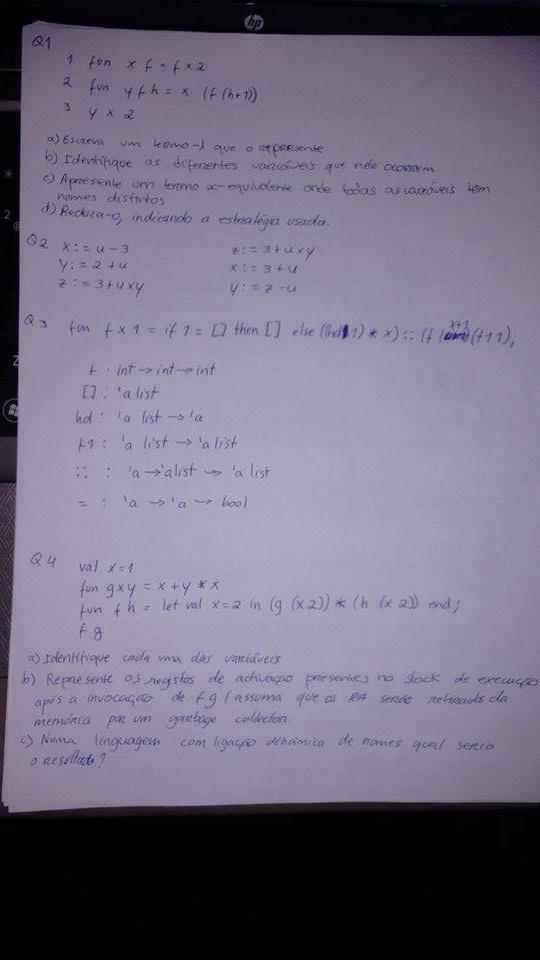 hp
Q1
1 fun x f = f x 2
2 fun y f h = x (f (h+1))
3 y x 2
a) Escreva um termo-λ que o represente
b) Identifique as diferentes variáveis que nele ocorrem
c) Apresente um termo α-equivalente onde todas as variáveis têm
nomes distintos
d) Reduza-o, indicando a estratégia usada.
Q2 x := u - 3 z := 3 + u x y
y := 2 + u x := 3 + u
z := 3 + u x y y := z - u
Q3 fun f x 1 = if 1 = [] then [] else (hd 1) * x) :: (f (x+1) (t 1 1);
+ : int → int → int
[] : 'a list
hd : 'a list → 'a
t1 : 'a list → 'a list
:: : 'a → 'a list → 'a list
= : 'a → 'a → bool
Q4 val x=1
fun g x y = x + y * x
fun f h = let val x=2 in (g (x 2)) * (h (x 2)) end;
f g
a) Identifique cada uma das variáveis
b) Represente os registos de activação presentes no stack de execução
após a invocação de f g (assuma que os RA serão retirados da
memória por um garbage collector.
c) Numa linguagem com ligação dinâmica de nomes qual seria
o resultado?